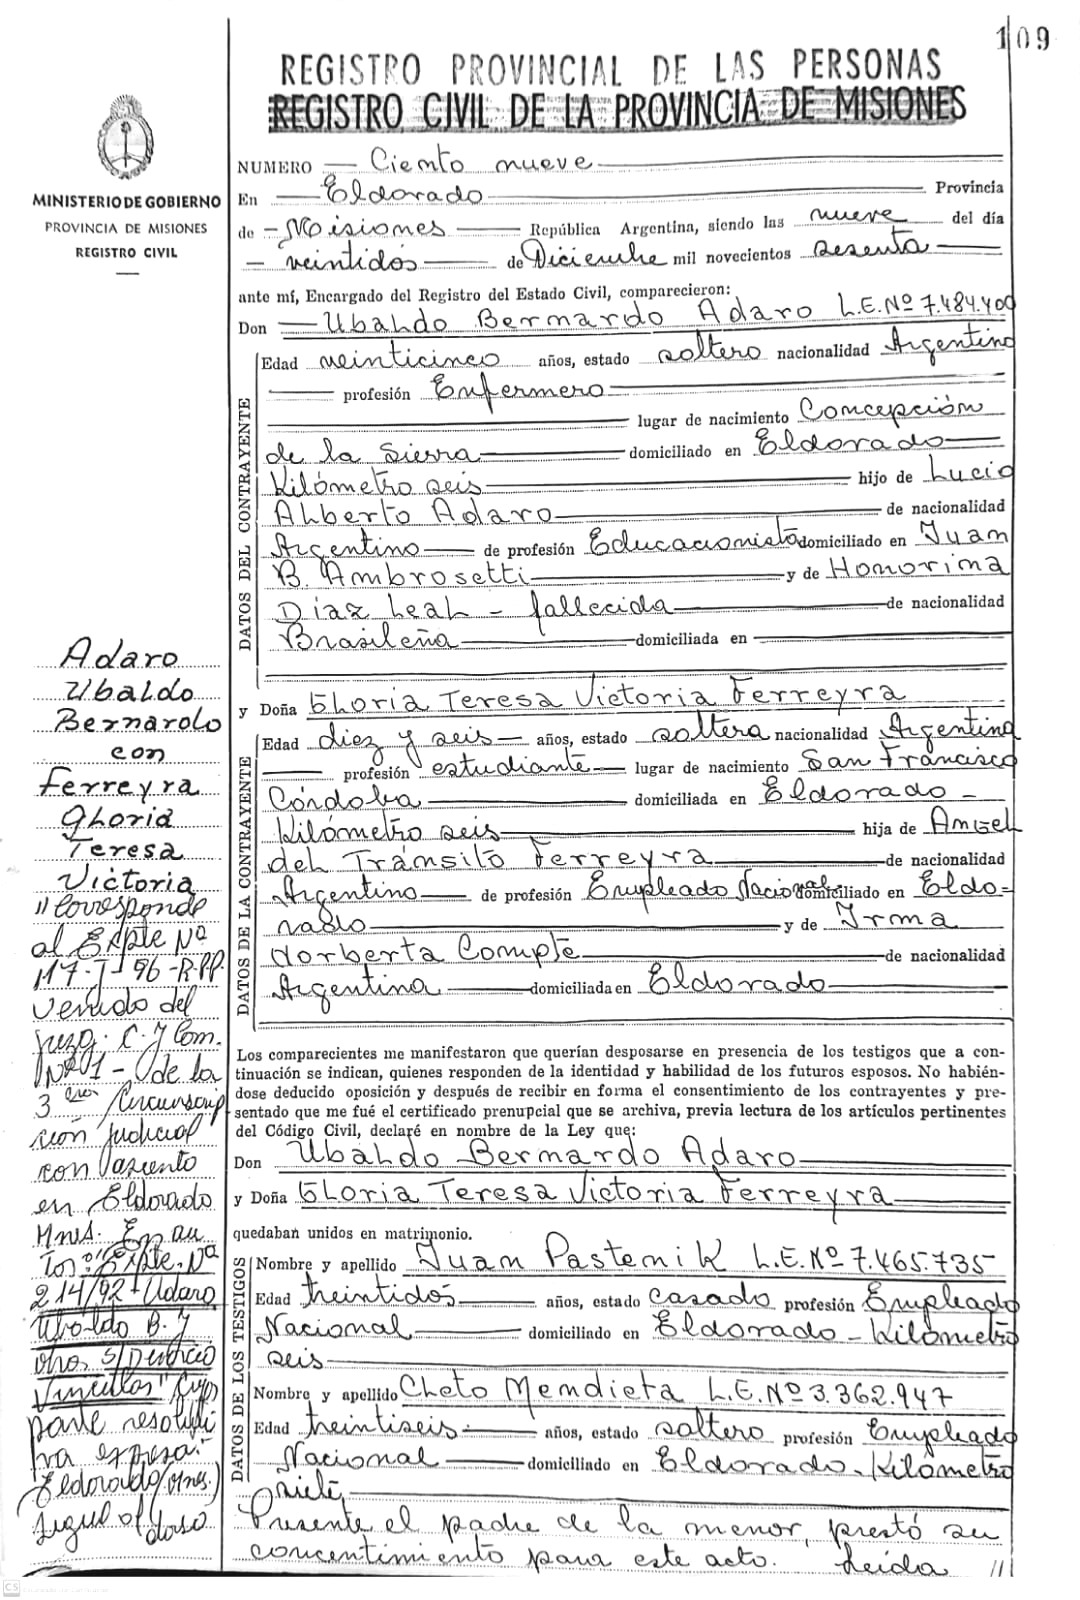 109
REGISTRO PROVINCIAL DE LAS PERSONAS
REGISTRO CIVIL DE LA PROVINCIA DE MISIONES
MINISTERIO DE GOBIERNO
PROVINCIA DE MISIONES
REGISTRO CIVIL
NUMERO Ciento nueve
En Eldorado Provincia
de Misiones República Argentina, siendo las nueve del día
veintidós de Diciembre mil novecientos sesenta
ante mí, Encargado del Registro del Estado Civil, comparecieron:
Don Ubaldo Bernardo Adaro L.E.Nº 7.484.400
DATOS DEL CONTRAYENTE
Edad veinticinco años, estado soltero nacionalidad Argentino
profesión Enfermero
lugar de nacimiento Concepción
de la Sierra domiciliado en Eldorado
Kilómetro seis hijo de Lucio
Alberto Adaro de nacionalidad
Argentino de profesión Educacionista domiciliado en Juan
B. Ambrosetti y de Honorina
Díaz Leal - fallecida de nacionalidad
Brasileña domiciliada en
y Doña Gloria Teresa Victoria Ferreyra
DATOS DE LA CONTRAYENTE
Edad diez y seis años, estado soltera nacionalidad Argentina
profesión estudiante lugar de nacimiento San Francisco
Córdoba domiciliada en Eldorado -
Kilómetro seis hija de Angel
del Tránsito Ferreyra de nacionalidad
Argentino de profesión Empleado Nacional domiciliado en Eldo-
rado y de Irma
Norberta Compte de nacionalidad
Argentina domiciliada en Eldorado
Los comparecientes me manifestaron que querían desposarse en presencia de los testigos que a con-
tinuación se indican, quienes responden de la identidad y habilidad de los futuros esposos. No habién-
dose deducido oposición y después de recibir en forma el consentimiento de los contrayentes y pre-
sentado que me fué el certificado prenupcial que se archiva, previa lectura de los artículos pertinentes
del Código Civil, declaré en nombre de la Ley que:
Don Ubaldo Bernardo Adaro
y Doña Gloria Teresa Victoria Ferreyra
quedaban unidos en matrimonio.
DATOS DE LOS TESTIGOS
Nombre y apellido Juan Pasternik L.E.Nº 7.465.735
Edad treintidós años, estado casado profesión Empleado
Nacional domiciliado en Eldorado - Kilómetro
seis
Nombre y apellido Cleto Mendieta L.E.Nº 3.362.947
Edad treintiseis años, estado soltero profesión Empleado
Nacional domiciliado en Eldorado - Kilómetro
siete
Presente el padre de la menor, prestó su
concentimiento para este acto. Leída //
Adaro
Ubaldo
Bernardo
con
Ferreyra
Gloria
Teresa
Victoria
//Corresponde
al Expte Nº
117-J-96-R.PP.
venido del
Juzg. C. y Com.
Nº 1 - de la
3 era Circunscrip
ción judicial
con asiento
en Eldorado
Mnes. En au
tos: "Expte. Nº
214/92 - Adaro
Ubaldo B. y
otra s/Divorcio
Vincular" Cuya
parte resoluti
va expresa:-
Eldorado (Mnes.)
sigue al dorso
CS